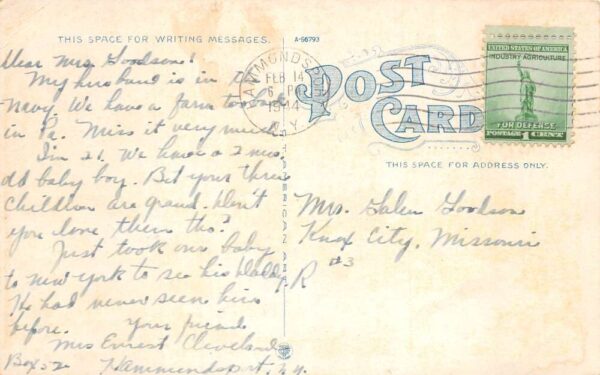 THIS SPACE FOR WRITING MESSAGES.
A-56793
Dear Mrs Goodson:
My husband is in the
Navy. We have a farm too back
in Pa. Miss it very much
I'm 21. We have a 2 mo.
old baby boy. Bet your three
children are grand. Don't
you love them tho?
Just took our baby
to New York to see his Daddy.
He had never seen him
before. Your friend
Mrs Ernest Cleveland
Box 52 Hammondsport, N.Y.
HAMMONDSPORT
FEB 14
6 PM
1944
N.Y.
POST
CARD
UNITED STATES OF AMERICA
INDUSTRY AGRICULTURE
FOR DEFENSE
POSTAGE 1 CENT
THIS SPACE FOR ADDRESS ONLY.
Mrs. Galen Goodson
Knox City, Missouri
R #3